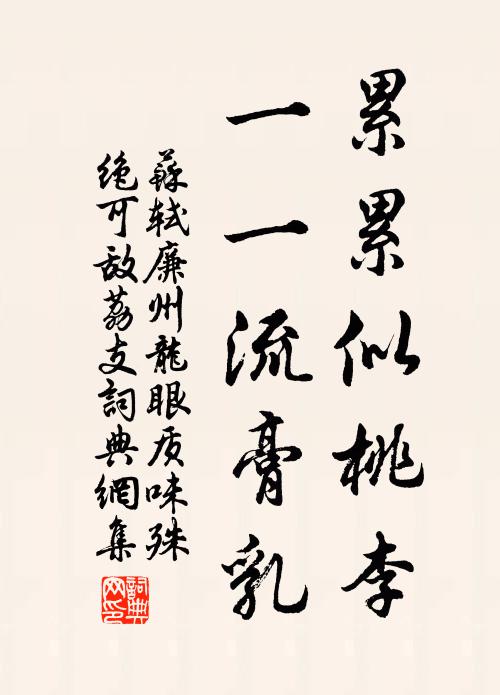 累累似桃李
一一流膏乳
蘇軾廉州龍眼质味殊
绝可敌荔支詞典網集
詞典网印